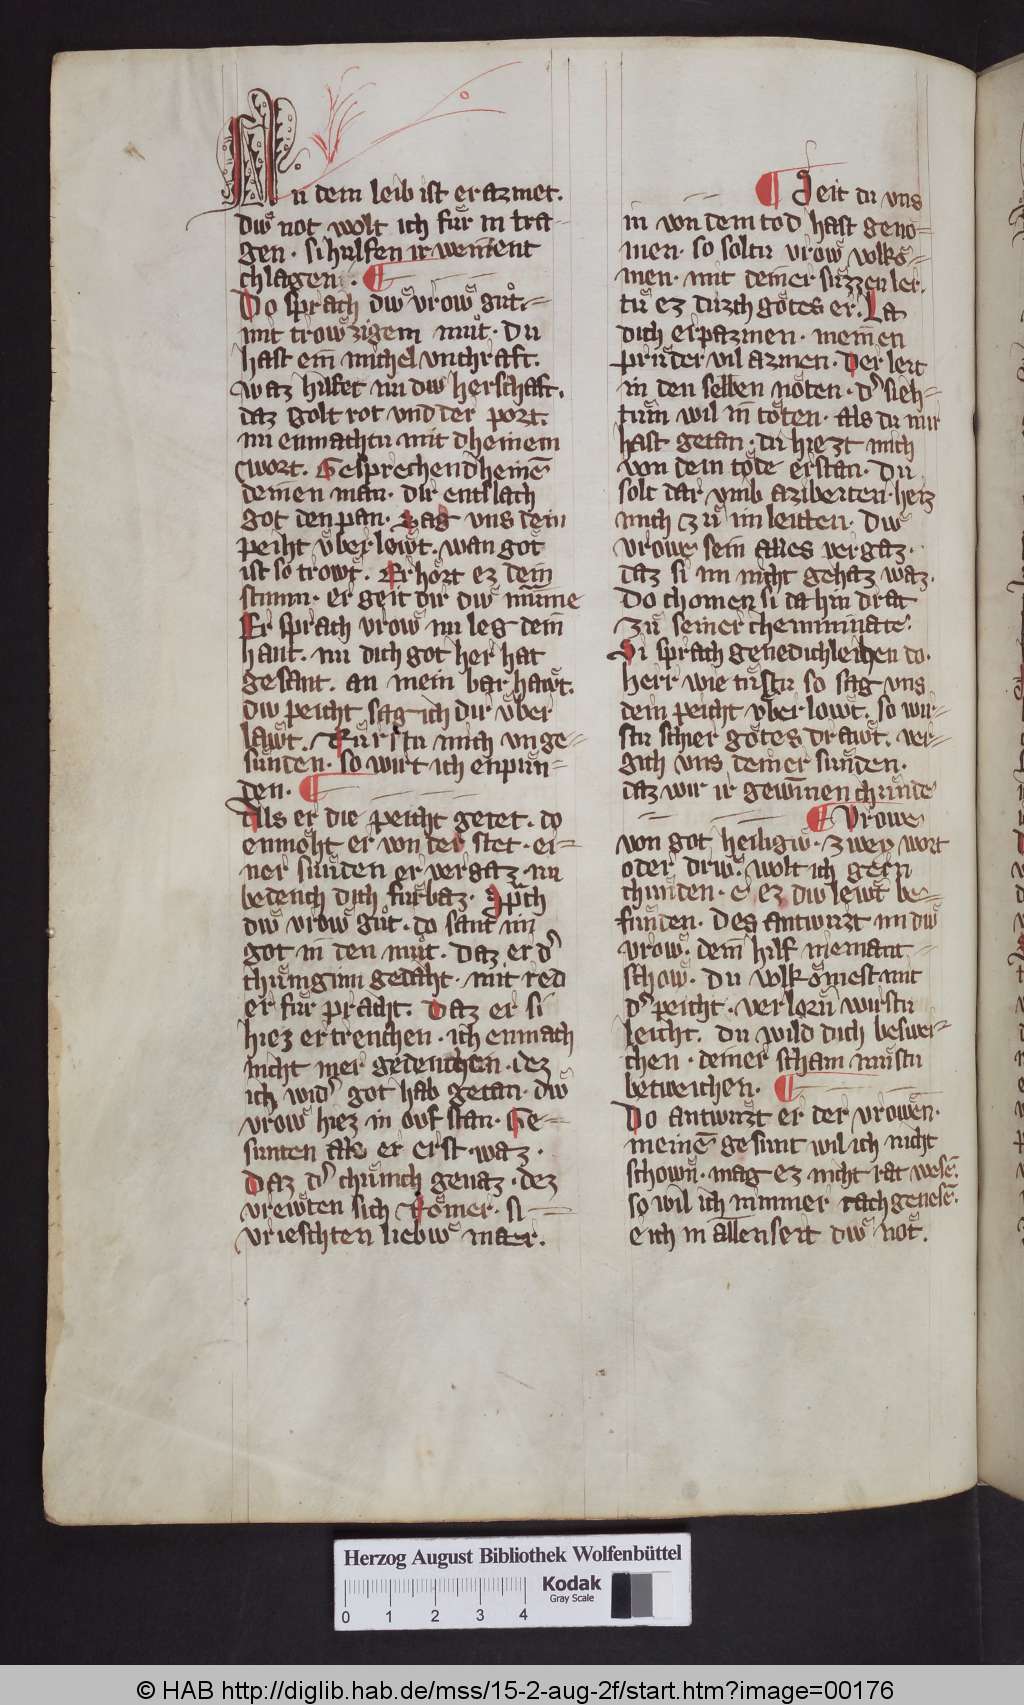 Nu dem leib ist er azmet.
diwͤ not wolt ich fuͤr in tra-
gen · si hulfen ir weinent
chlagen · ¶
Do sprach diwͤ vrowͤ guͦt.
mit trowͤzigem muͦt · Du
hast ein michel vnchraft.
waz hilfet nu diw herschaft.
daz golt rot vnd der port.
nu enmachtu mit dheinem
wort. Gesprechen dheinē
deinen man · dir entslach
got den pan. Sag vns dein
peiht vͤber lowͤt. wan got
ist so trowͤt. Erhoͤrt ez dein
stimm · er geit dir diwͤ minne
Er sprach vrowͤ nu leg dein
hant. nu dich got her hat
gesant. an mein bar hawͤt.
diw peicht sag ich dir vͤber
lawͤt. Ruͤrstu mich vnge-
sunden · so wirt ich enpun-
den · ¶
Als er die peicht getet. do
enmoͤht er von der stet · ei-
ner suͤnden er vergaz · nu
bedench dich fuͤrbaz · Spͣch
diw vrowͤ guͦt · do sant im
got in den muͦt · Daz er dˢ
chuͤniginn gedaͤht · mit red
er fuͤr praͤcht. Daz er si
hiez ertrenchen · ich enmach
nicht mer gedenchen · dez
ich widˢ got hab getan · diwͤ
vrowͤ hiez in ouf stan · Ge-
sunten als er erst waz ·
Daz dˢ chuͤnich genaz · dez
vrewten sich Roͤmer · si
vrieschten liebiwͤ maer.
¶ Seit du vns
in von dem tod hast geno-
men · so soltu vrowͤ volkō-
men · mit deiner suͤzzen ler.
tuͤ ez durch gotes er. La
dich erparmen · meinen
pruͤder vil armen · Der leit
in den selben noͤten · dˢ sieh-
tum wil in toͤten · als du mir
hast getan · du hiezt mich
von dem tode erstan · Du
solt dar vmb arzberten · heiz
mich zuͤ im leitten · Diwͤ
vrowe sein alles vergaz ·
daz si im nicht gehaz waz.
Do chomen si da hin drat
zuͤ seiner chemmnate ·
Si sprach genedichleichen do.
herr wie tuͤstu so sag vns
dein peicht vͤber lowͤt. so wir-
stu schier gotes drawͤt. ver-
gich vns deiner suͤnden ·
daz wir ir gewinnen chunde
¶ Vrowe
von got heiligiwͤ · zwey wort
oder driwͤ · wolt ich gern
chunden · e ez diw lewͤt be-
funden · Des antwurt im diwͤ
vrowͤ. dem hilf niemant
schow · Du volkoͤmest mit
dˢ peicht · verlorn wirstu
leicht. du wild dich beswei-
chen · deiner scham muͤstu
betweichen · ¶
Do antwurt er der vrowen ·
meinē gesunt wil ich nicht
schown · mag ez nicht rat wesē.
so wil ich nimmer rach genesē.
e ich in allen seit diwͤ not.
Herzog August Bibliothek Wolfenbüttel
Kodak
Gray Scale
0 1 2 3 4
© HAB http://diglib.hab.de/mss/15-2-aug-2f/start.htm?image=00176